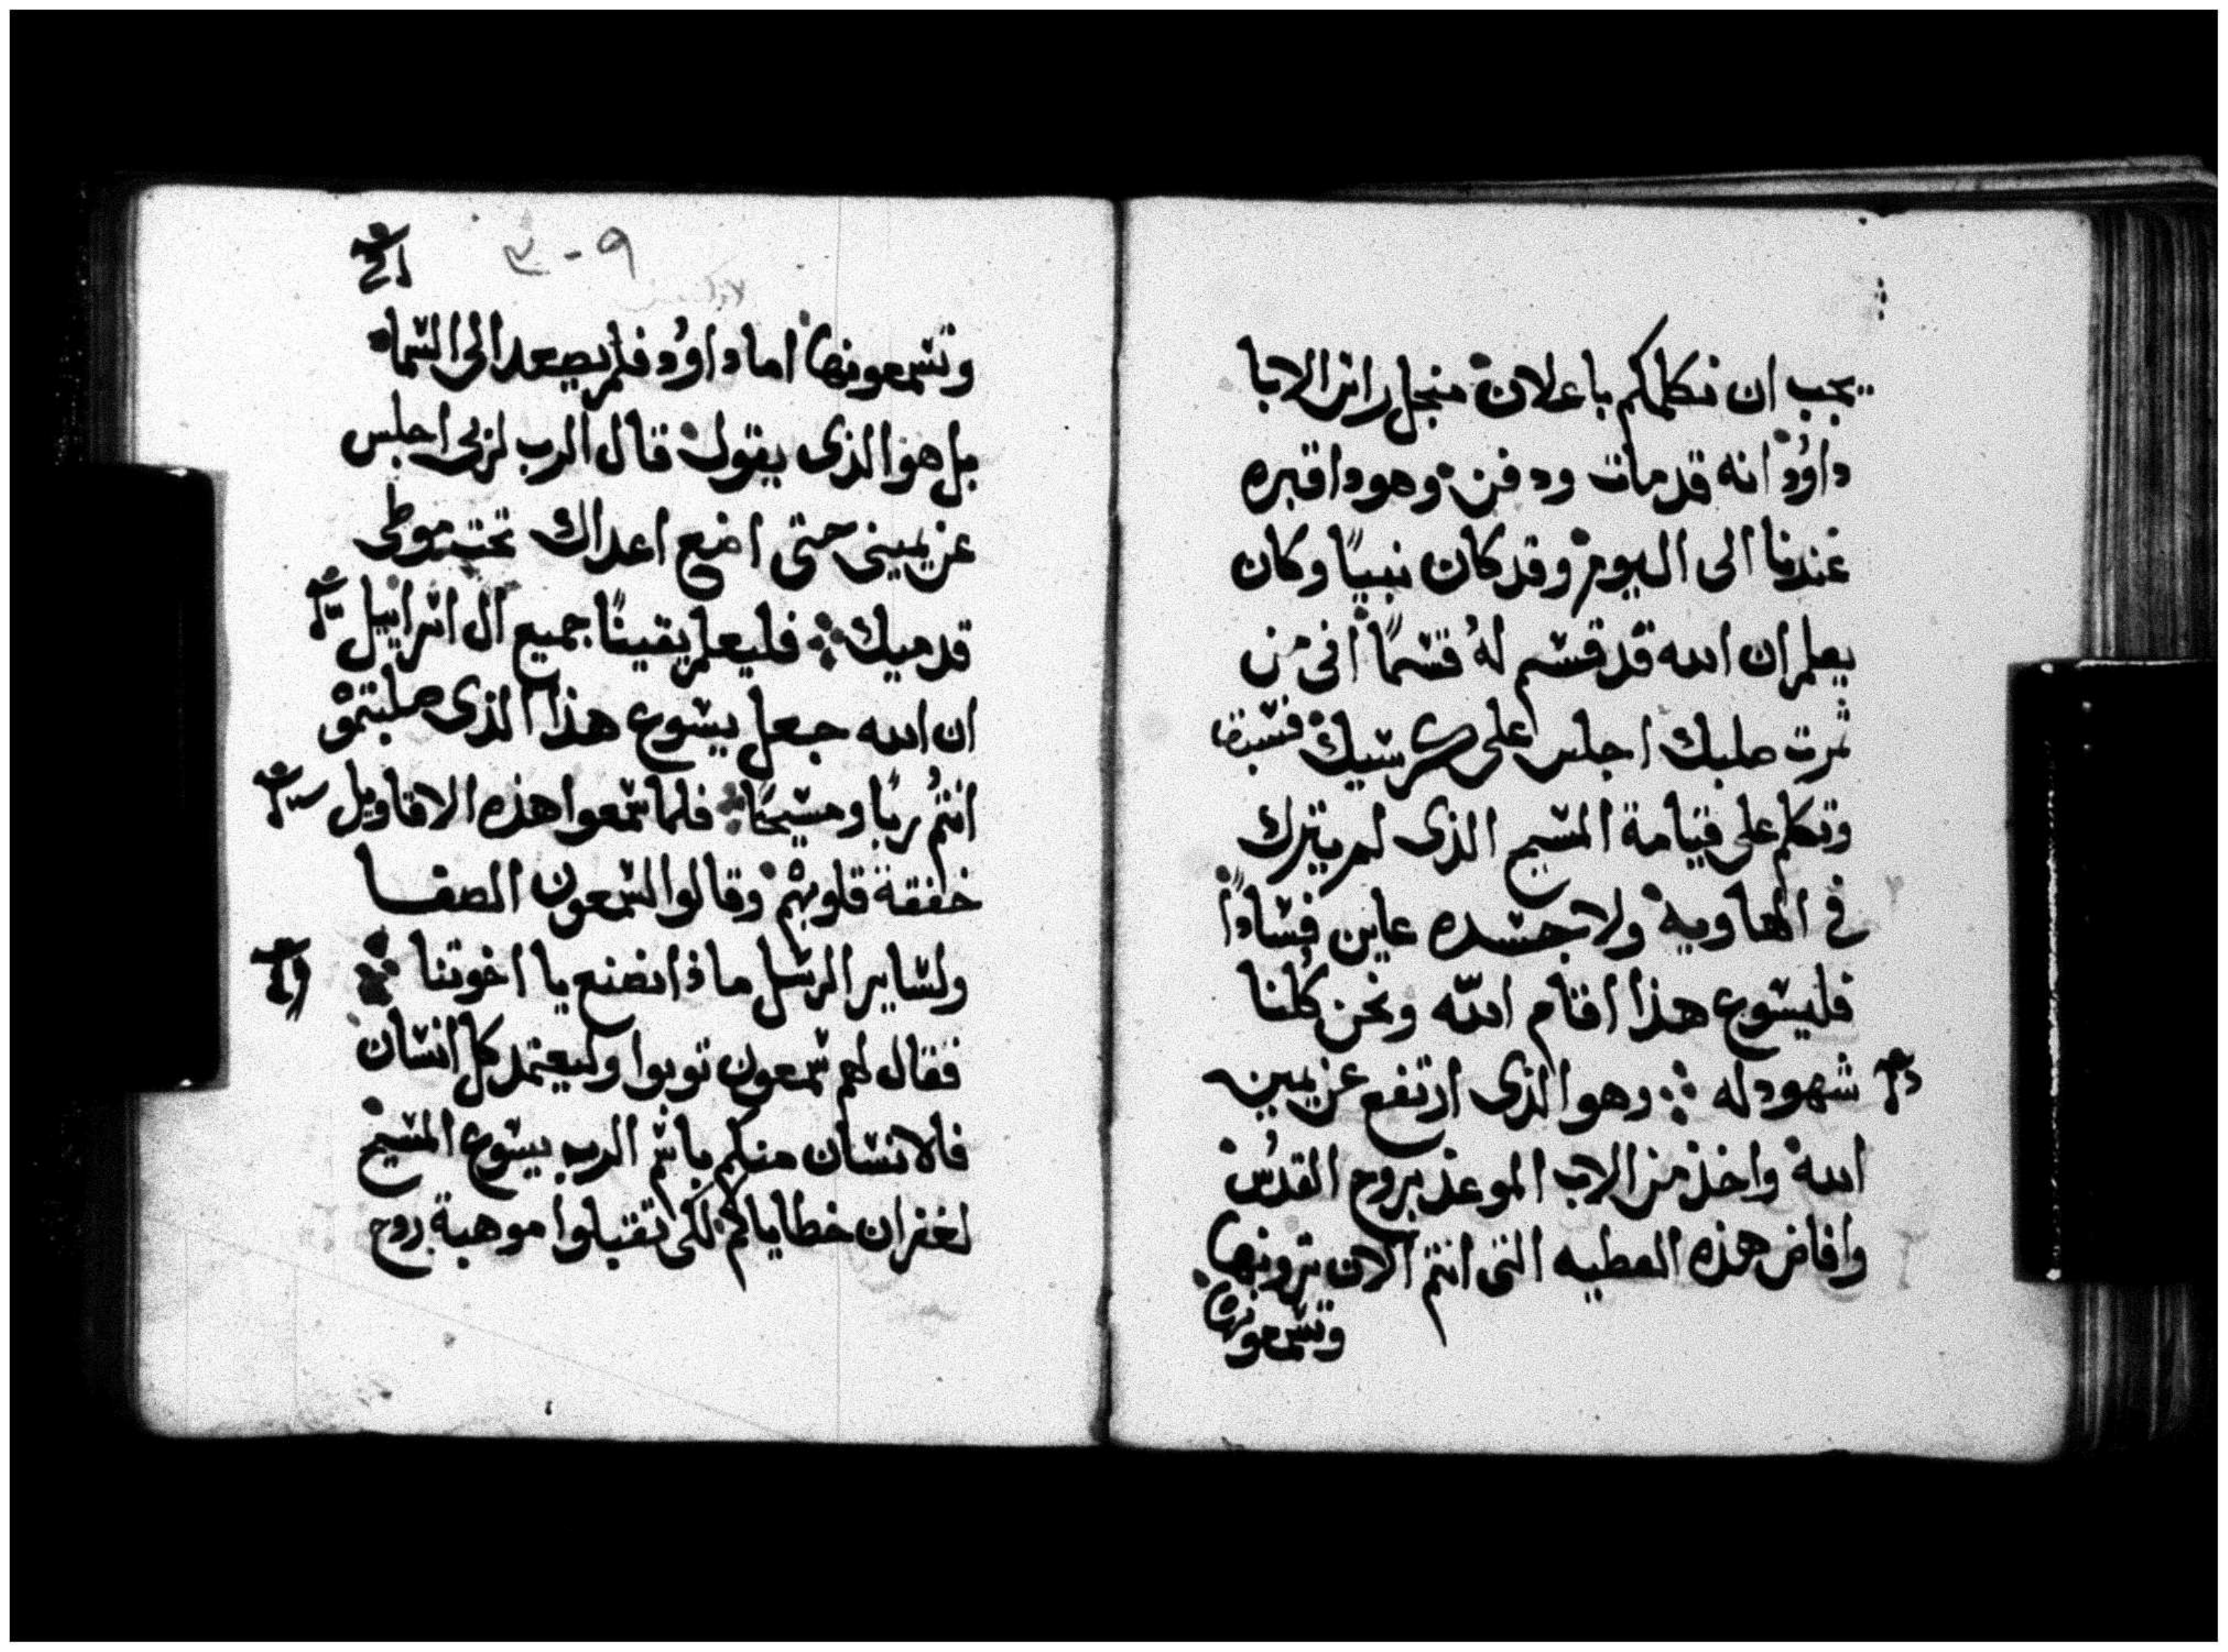 يجب ان نكلمكم باعلان منجل راس الابا
داوُد انه قد مات ودفن وهودا قبره
عندنا الى اليوم وقد كان نبيًا وكان
يعلم ان الله قد قسم لهُ قسمًا انى من
ثمرت صلبك اجلس على كرسيك فسبق
وتكلم على قيامة المسيح الذى لم يترك
فى الهاويه ولا جسده عاين فسادًا
فليسوع هذا اقام الله ونحن كُلنا
شهود له وهو الذى ارتفع عن يمين
الله واخذ من الاب الموعد بروح القدُس
وافاض هذه العطيه التى انتم الان ترونها
وتسمعونها
٩ - ٣
وتسمعونها اما داوُد فلم يصعد الى السما
بل هو الذى يقول قال الرب لربى اجلس
عن يمينى حتى اضع اعداك تحت موطى
قدميك فليعلم يقينًا جميع ال اسراييل
ان الله جعل يسوع هذا الذى صلبتموْ
انتمُ ربًا ومسيحًا فلما سمعوا هذه الاقاويل
خفقة قلوبهم وقالوا لسمعون الصفا
ولساير الرسل ماذا نصنع يا اخوتنا
فقال لهم سمعون توبوا وليعتمد كل انسان
فالانسان منكم باسم الرب يسوع المسيح
لغفران خطاياكم لكى تقبلوا موهبة روح